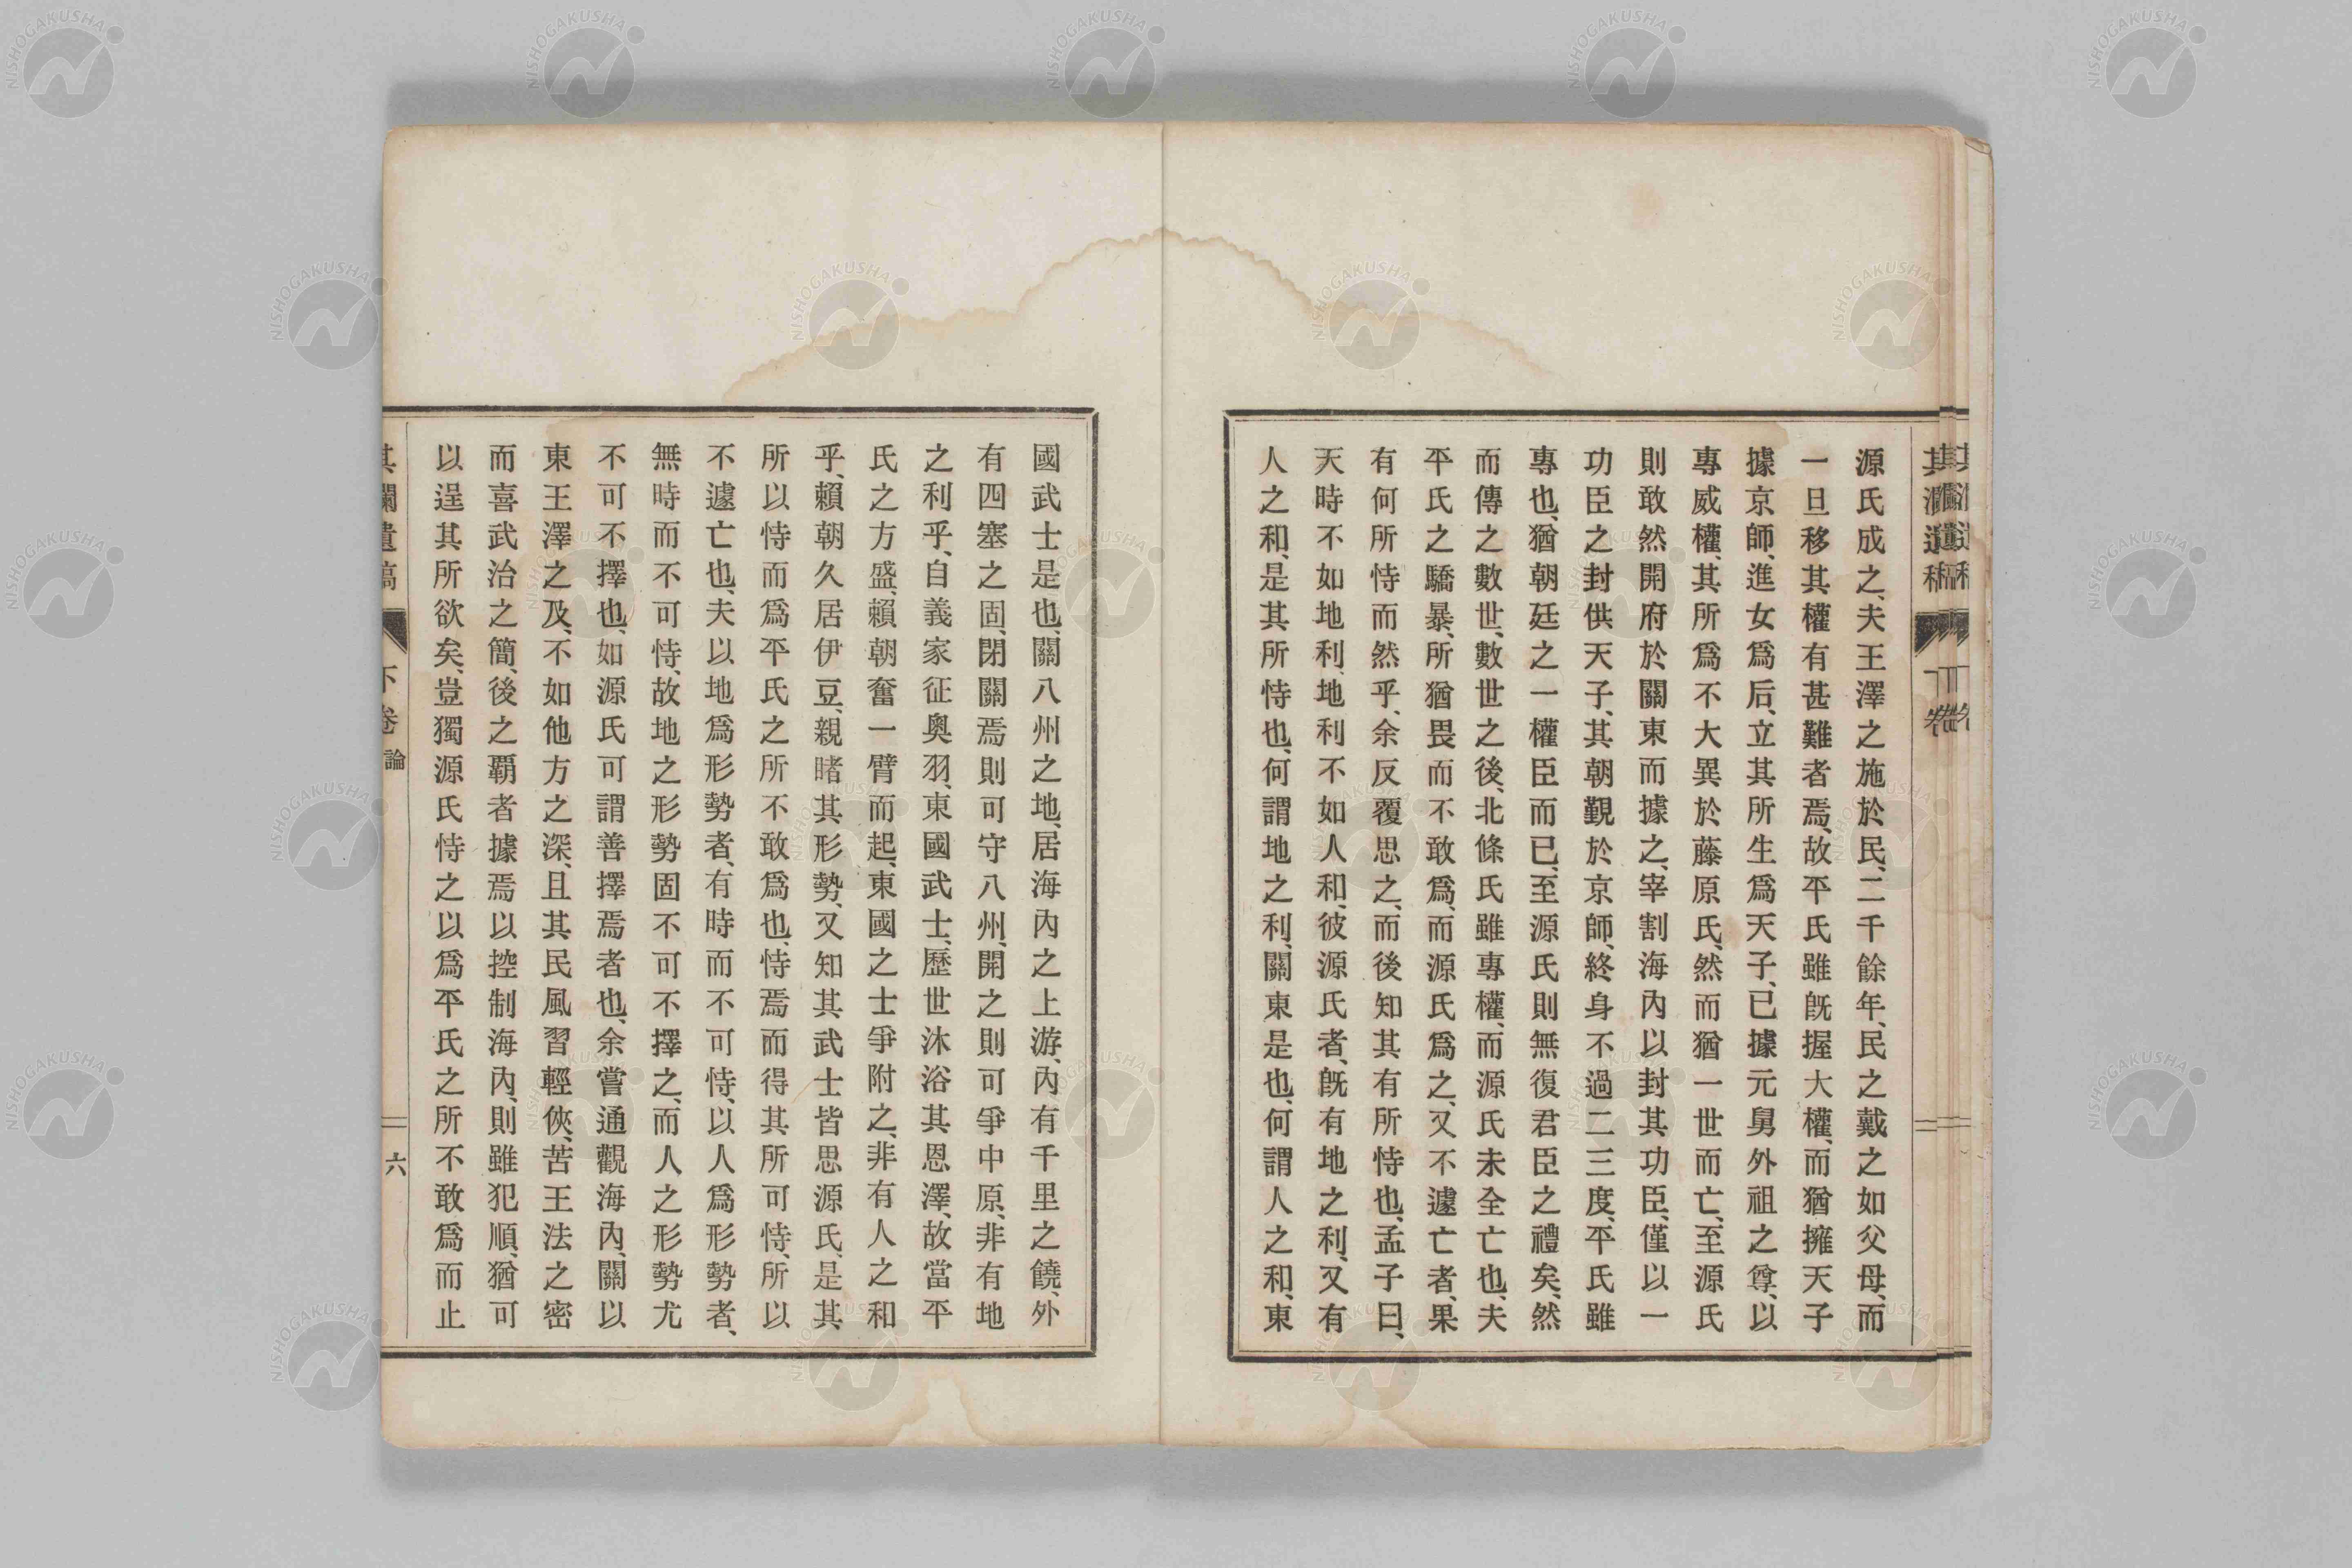 源氏成之、夫王澤之施於民、二千餘年、民之戴之如父母、而
一旦移其權有甚難者焉、故平氏雖既握大權、而猶擁天子
據京師、進女爲后、立其所生爲天子、已據元舅外祖之尊、以
專威權、其所爲不大異於藤原氏、然而猶一世而亡、至源氏
則敢然開府於關東而據之、宰割海內以封其功臣、僅以一
功臣之封供天子、其朝覲於京師、終身不過二三度、平氏雖
專也、猶朝廷之一權臣而已、至源氏則無復君臣之禮矣、然
而傳之數世、數世之後、北條氏雖專權、而源氏未全亡也、夫
平氏之驕暴、所猶畏而不敢爲、而源氏爲之、又不遽亡者、果
有何所恃而然乎、余反覆思之、而後知其有所恃也、孟子曰、
天時不如地利、地利不如人和、彼源氏者、既有地之利、又有
人之和、是其所恃也、何謂地之利、關東是也、何謂人之和、東
國武士是也、關八州之地、居海內之上游、內有千里之饒、外
有四塞之固、閉關焉則可守八州、開之則可爭中原、非有地
之利乎、自義家征奧羽、東國武士、歷世沐浴其恩澤、故當平
氏之方盛、賴朝奮一臂而起、東國之士爭附之、非有人之和
乎、賴朝久居伊豆、親睹其形勢、又知其武士皆思源氏、是其
所以恃而爲平氏之所不敢爲也、恃焉而得其所可恃、所以
不遽亡也、夫以地爲形勢者、有時而不可恃、以人爲形勢者、
無時而不可恃、故地之形勢固不可不擇之、而人之形勢尤
不可不擇也、如源氏可謂善擇焉者也、余嘗通觀海內、關以
東王澤之及、不如他方之深、且其民風習輕俠、苦王法之密
而喜武治之簡、後之覇者據焉以控制海內、則雖犯順、猶可
以逞其所欲矣、豈獨源氏恃之以爲平氏之所不敢爲而止
其瀾遺稿 下卷 論 六
NISHOGAKUSHA